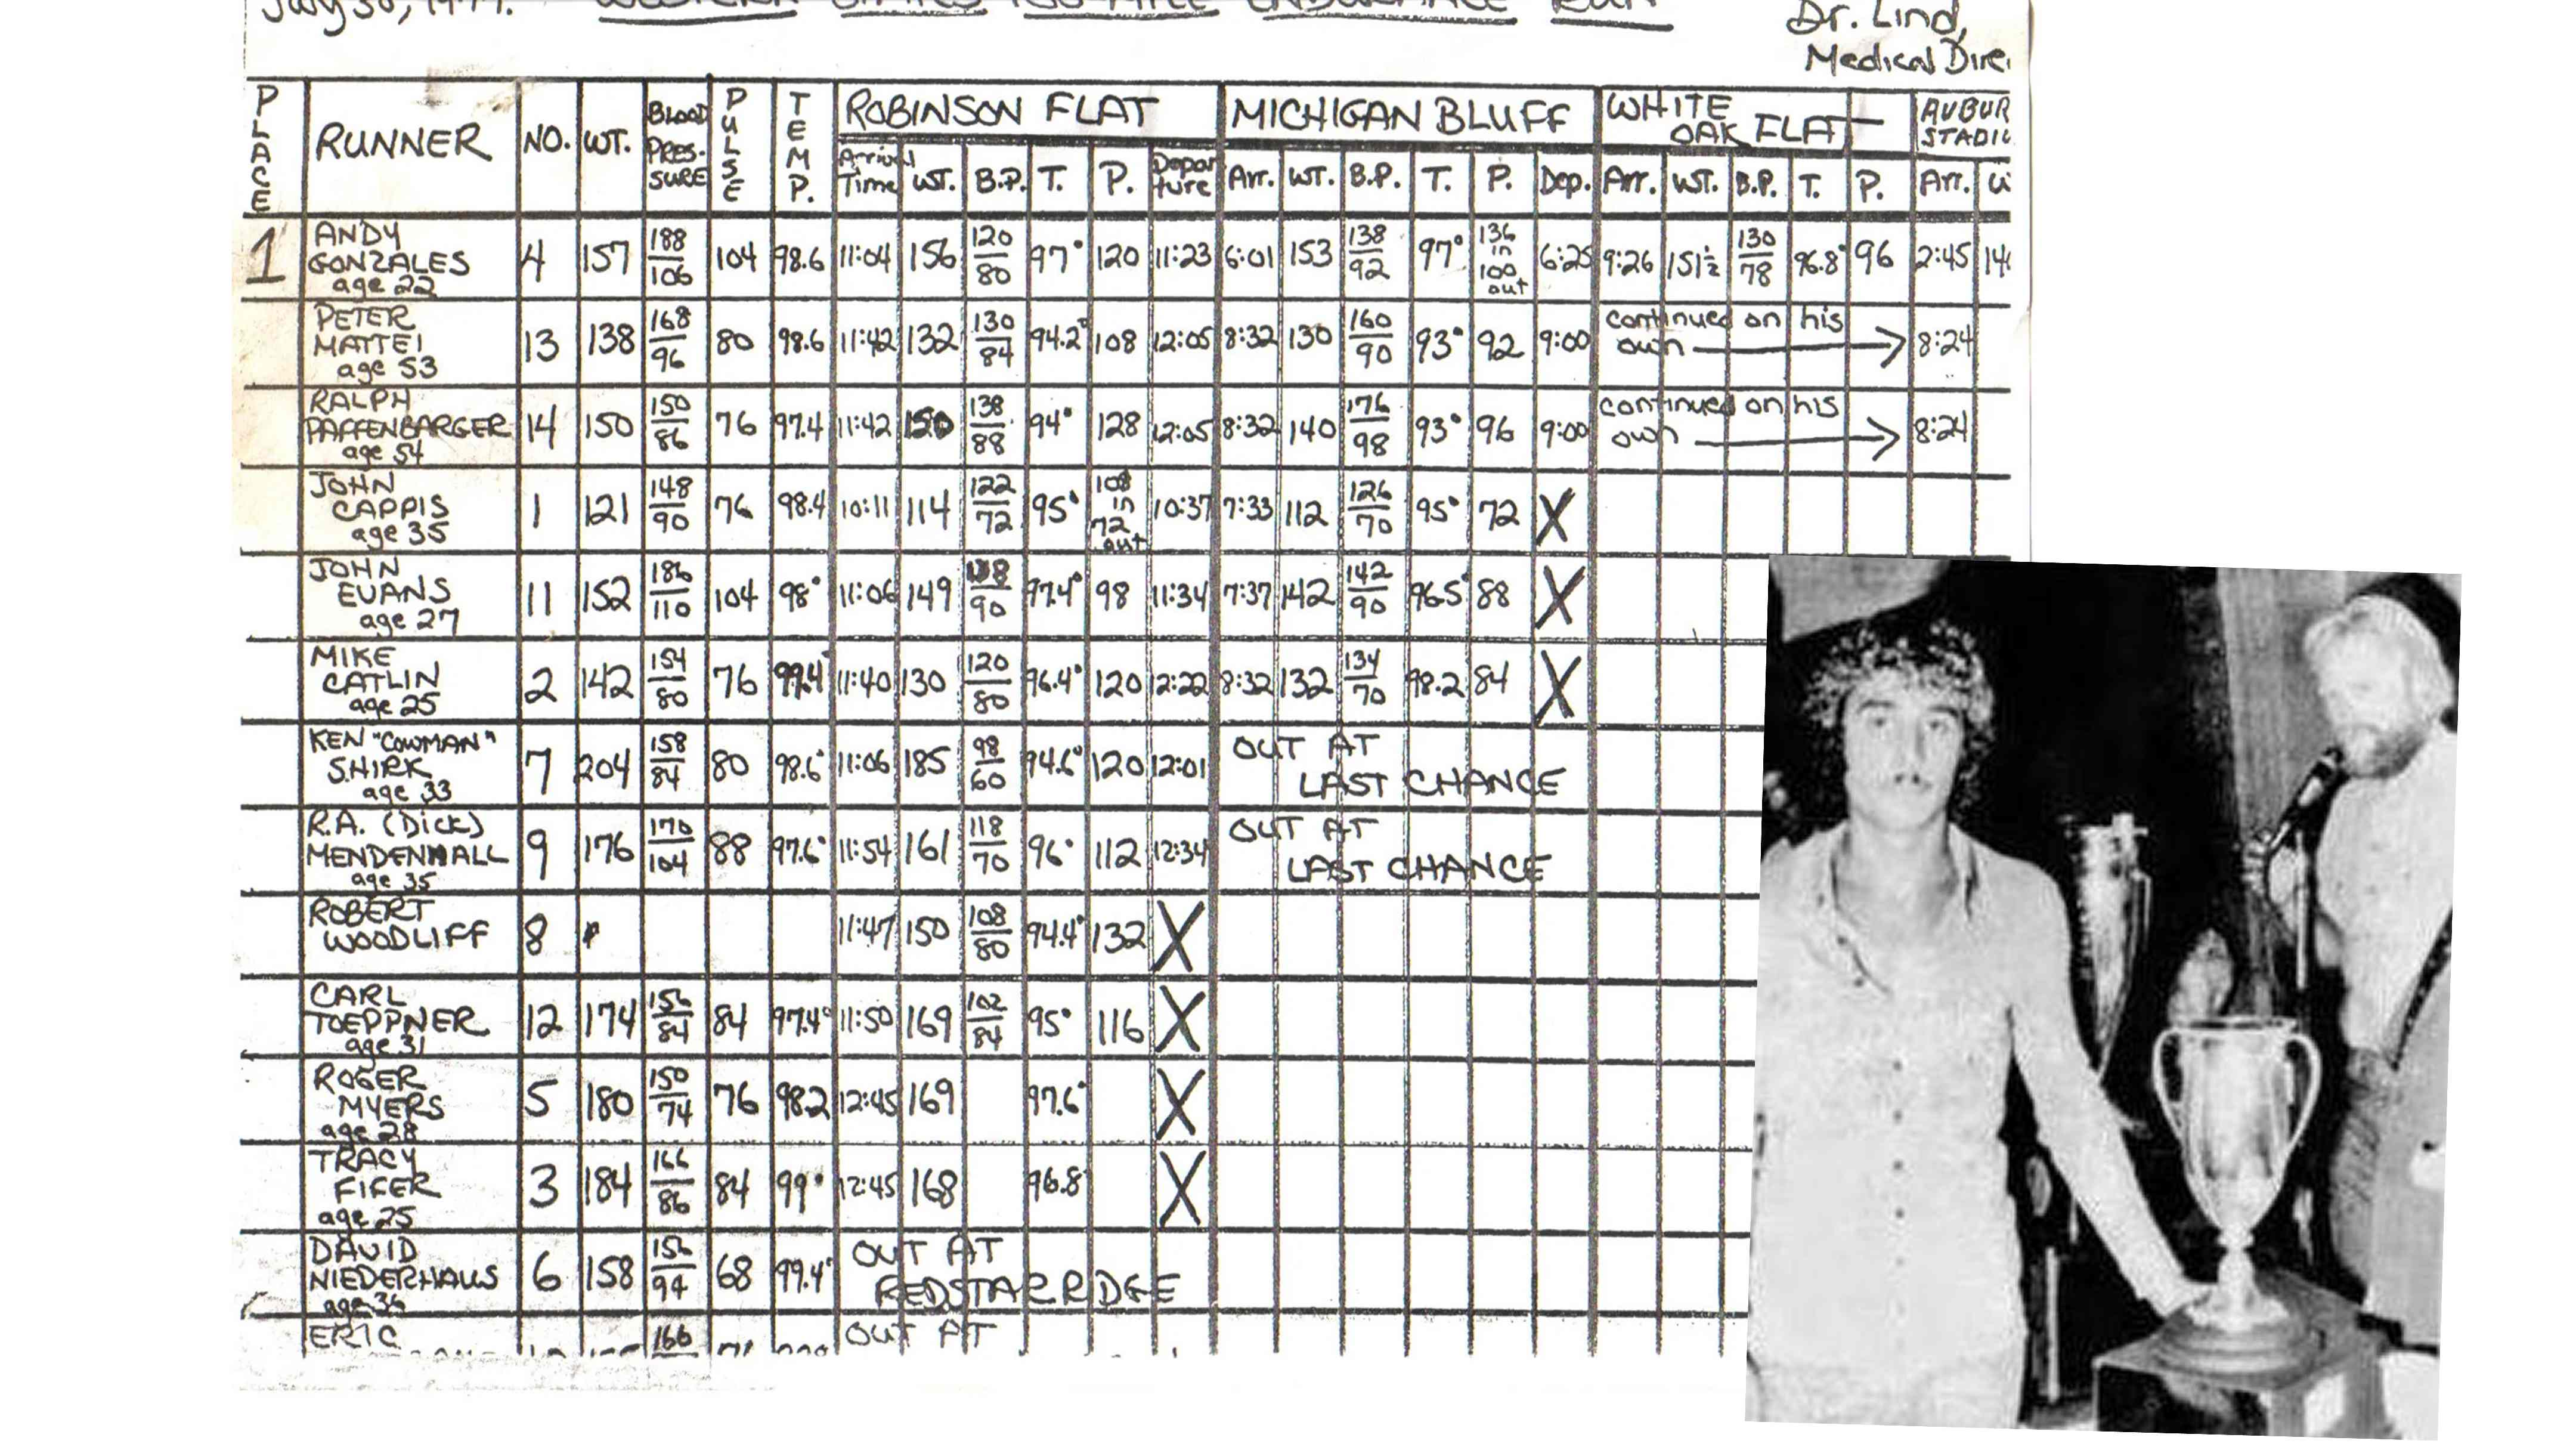 July 30, 1977. WESTERN STATES 100 MILE ENDURANCE RUN
Dr. Lind,
Medical Dire
PLACE RUNNER NO. WT. BLOOD PRES-SURE PULSE TEMP. ROBINSON FLAT MICHIGAN BLUFF WHITE OAK FLAT AUBUR STADIU
Arrival Time WT. B.P. T. P. Depar ture Arr. WT. B.P. T. P. Dep. Arr. WT. B.P. T. P. Arr.
1 ANDY GONZALES age 22 4 157 188/106 104 98.6 11:04 156 120/80 97° 120 11:23 6:01 153 138/92 97° 136 in 100 out 6:25 9:26 151½ 130/78 96.8° 96 2:45
PETER MATTEI age 53 13 138 168/96 80 98.6 11:42 132 130/84 94.2° 108 12:05 8:32 130 160/90 93° 92 9:00 continued on his own 8:24
RALPH PAFFENBARGER age 54 14 150 150/86 76 97.4 11:42 150 138/88 94° 128 12:05 8:32 140 176/98 93° 96 9:00 continued on his own 8:24
JOHN CAPPIS age 35 1 121 148/90 76 98.4 10:11 114 122/72 95° 108 in 72 out 10:37 7:33 112 126/70 95° 72 X
JOHN EVANS age 27 11 152 186/110 104 98° 11:06 149 /90 97.4° 98 11:34 7:37 142 142/90 96.5° 88 X
MIKE CATLIN age 25 2 142 154/80 76 99.4° 11:40 130 120/80 96.4° 120 12:22 8:32 132 134/70 98.2 84 X
KEN "COWMAN" SHIRK age 33 7 204 158/84 80 98.6° 11:06 185 98/60 94.6° 120 12:01 OUT AT LAST CHANCE
R.A. (DICK) MENDENHALL age 35 9 176 170/104 88 97.6° 11:54 161 118/70 96° 112 12:34 OUT AT LAST CHANCE
ROBERT WOODLIFF 8 11:47 150 108/80 94.4° 132 X
CARL TOEPPNER age 31 12 174 156/84 84 97.4° 11:50 169 102/84 95° 116 X
ROGER MYERS age 28 5 180 150/74 76 98.2 12:45 169 97.6° X
TRACY FIFER age 25 3 184 166/86 84 99° 12:45 168 96.8 X
DAVID NIEDERHAUS age 36 6 158 156/94 68 99.4° OUT AT REDSTAR RIDGE
ERIC 166 OUT AT